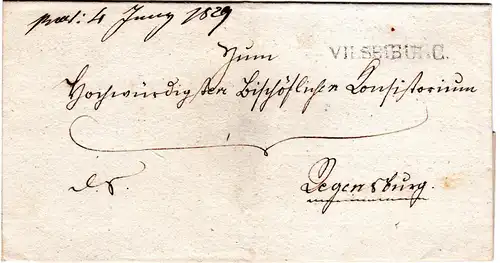 praes: 4 Juny 1829
Zum
VILSBIBURG.
Hochwürdigsten Bischöflichen Konsistorium
d. s.
Regensburg.